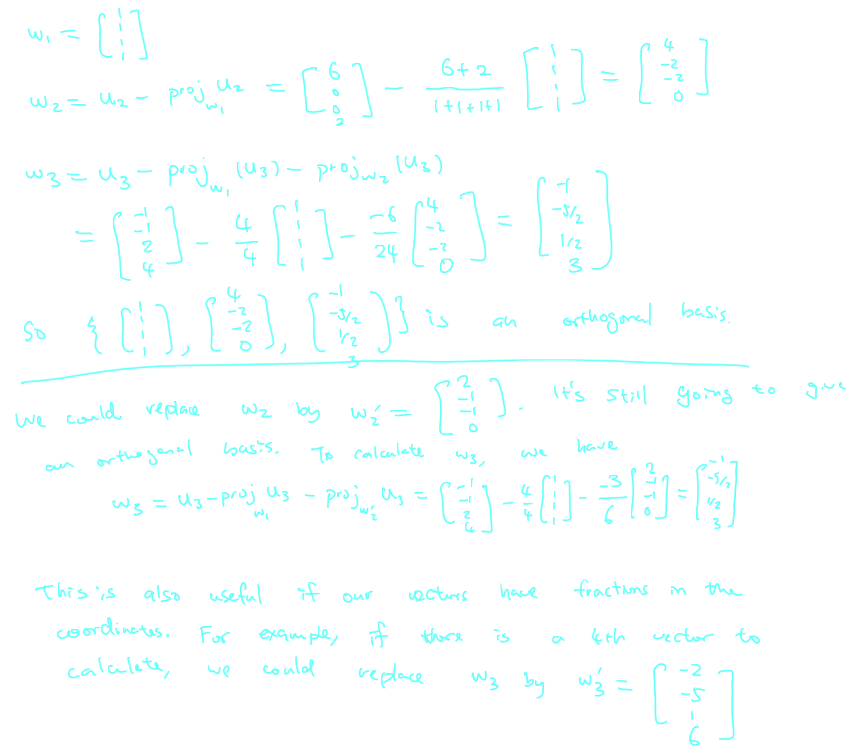 w₁ = [1 1 1 1]
w₂ = u₂ - proj_w₁ u₂ = [6 0 0 2] - (6+2)/(1+1+1+1) [1 1 1 1] = [4 -2 -2 0]
w₃ = u₃ - proj_w₁ (u₃) - proj_w₂ (u₃)
= [-1 -1 2 4] - 4/4 [1 1 1 1] - -6/24 [4 -2 -2 0] = [-1 -5/2 1/2 3]
So { [1 1 1 1], [4 -2 -2 0], [-1 -5/2 1/2 3] } is an orthogonal basis.
We could replace w₂ by w₂' = [2 -1 -1 0]. It's still going to give
an orthogonal basis. To calculate w₃, we have
w₃ = u₃ - proj_w₁ u₃ - proj_w₂' u₃ = [-1 -1 2 4] - 4/4 [1 1 1 1] - -3/6 [2 -1 -1 0] = [-1 -5/2 1/2 3]
This is also useful if our vectors have fractions in the
coordinates. For example, if there is a 4th vector to
calculate, we could replace w₃ by w₃' = [-2 -5 1 6]